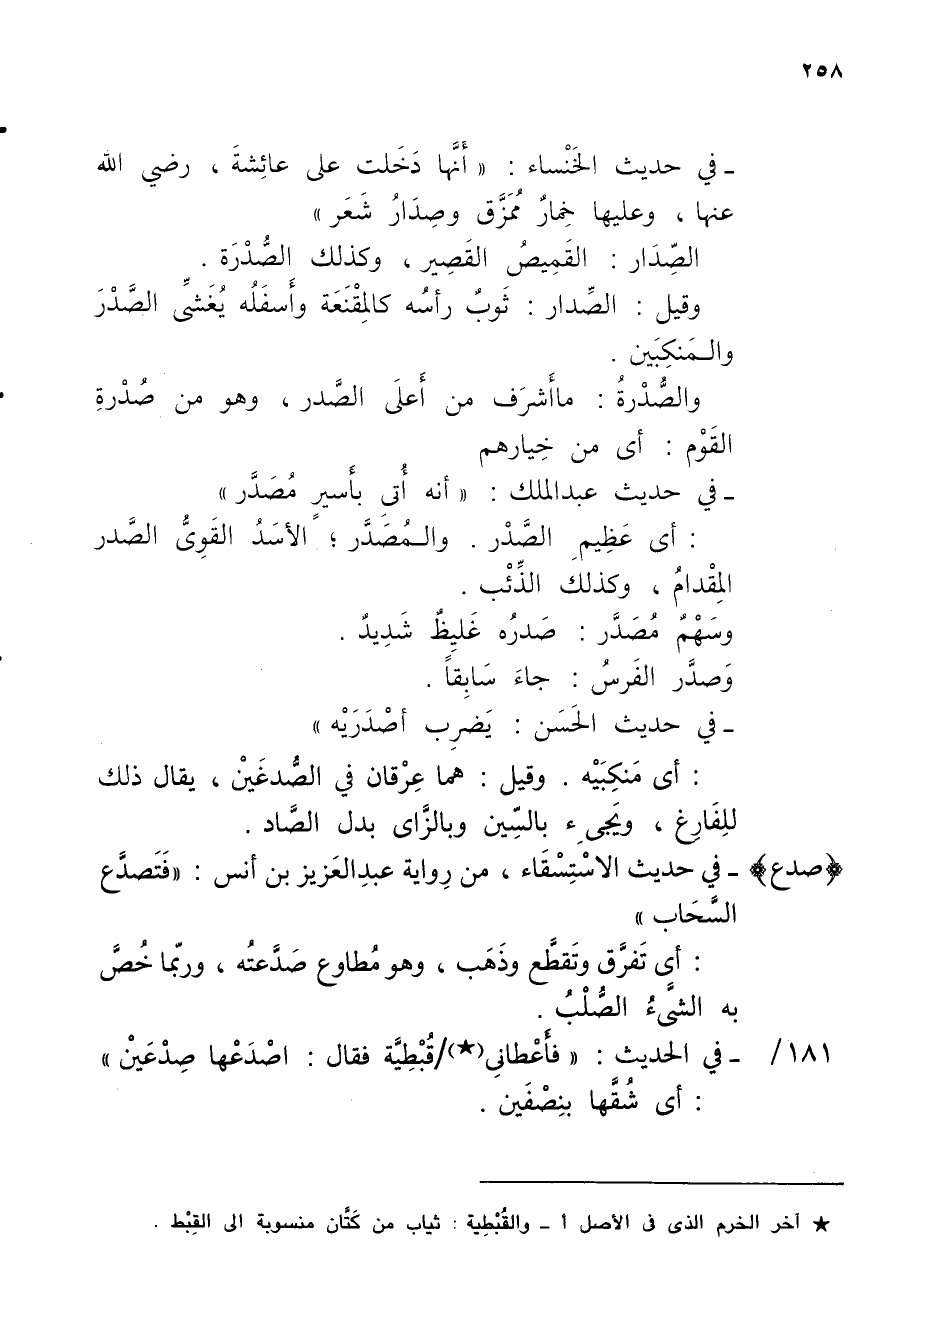 ٢٥٨
ـ في حديث الخَنْساء : « أَنَّها دَخَلت على عائِشةَ ، رضي الله
عنها ، وعليها خِمارٌ مُمَزَّق وصِدَارُ شَعَر »
الصِّدَار : القَمِيصُ القَصِير ، وكذلك الصُّدْرَة .
وقيل : الصِّدار : ثَوبٌ رأسُه كالمِقْنَعَة وأَسفَلُه يُغَشىِّ الصَّدْرَ
والـمَنكِبَين .
والصُّدْرةُ : ماأَشرَف من أَعلَى الصَّدر ، وهو من صُدْرةِ
القَوْم : أى من خِيارهم
ـ في حديث عبدالملك : « أنه أُتى بأَسيرٍ مُصَدَّر »
: أى عَظِيمِ الصَّدْر . والـمُصَدَّر ؛ الأسَدُ القَوِىُّ الصَّدر
المِقْدامُ ، وكذلك الذِّئْب .
وسَهْمٌ مُصَدَّر : صَدرُه غَلِيظٌ شَدِيدٌ .
وَصدَّر الفَرسُ : جاءَ سَابِقاً .
ـ في حديث الحَسَن : يَضرِب أَصْدَرَيْه »
: أى مَنكِبَيْه . وقيل : هما عِرْقان في الصُّدغَيْن ، يقال ذلك
للفَارِغ ، ويَجىِء بالسِّين وبالزَّاى بدل الصَّاد .
﴿صدع﴾ ـ في حديث الاسْتِسْقَاء ، من رِواية عبدِالعَزيز بن أَنس : «فَتَصدَّع
السَّحَاب »
: أى تَفرَّق وتَقطَّع وذَهَب ، وهو مُطاوع صَدَّعتُه ، وربّما خُصَّ
به الشَّىءُ الصُّلْبُ .
/١٨١ ـ في الحديث : « فأَعْطاني(★)/قُبْطِيَّة فقال : اصْدَعْها صِدْعَيْن »
: أى شُقَّها بنِصْفَين .
★ آخر الخرم الذى فى الأصل أ ـ والقُبْطِية : ثياب من كَتَّان منسوبة الى القِبْط .